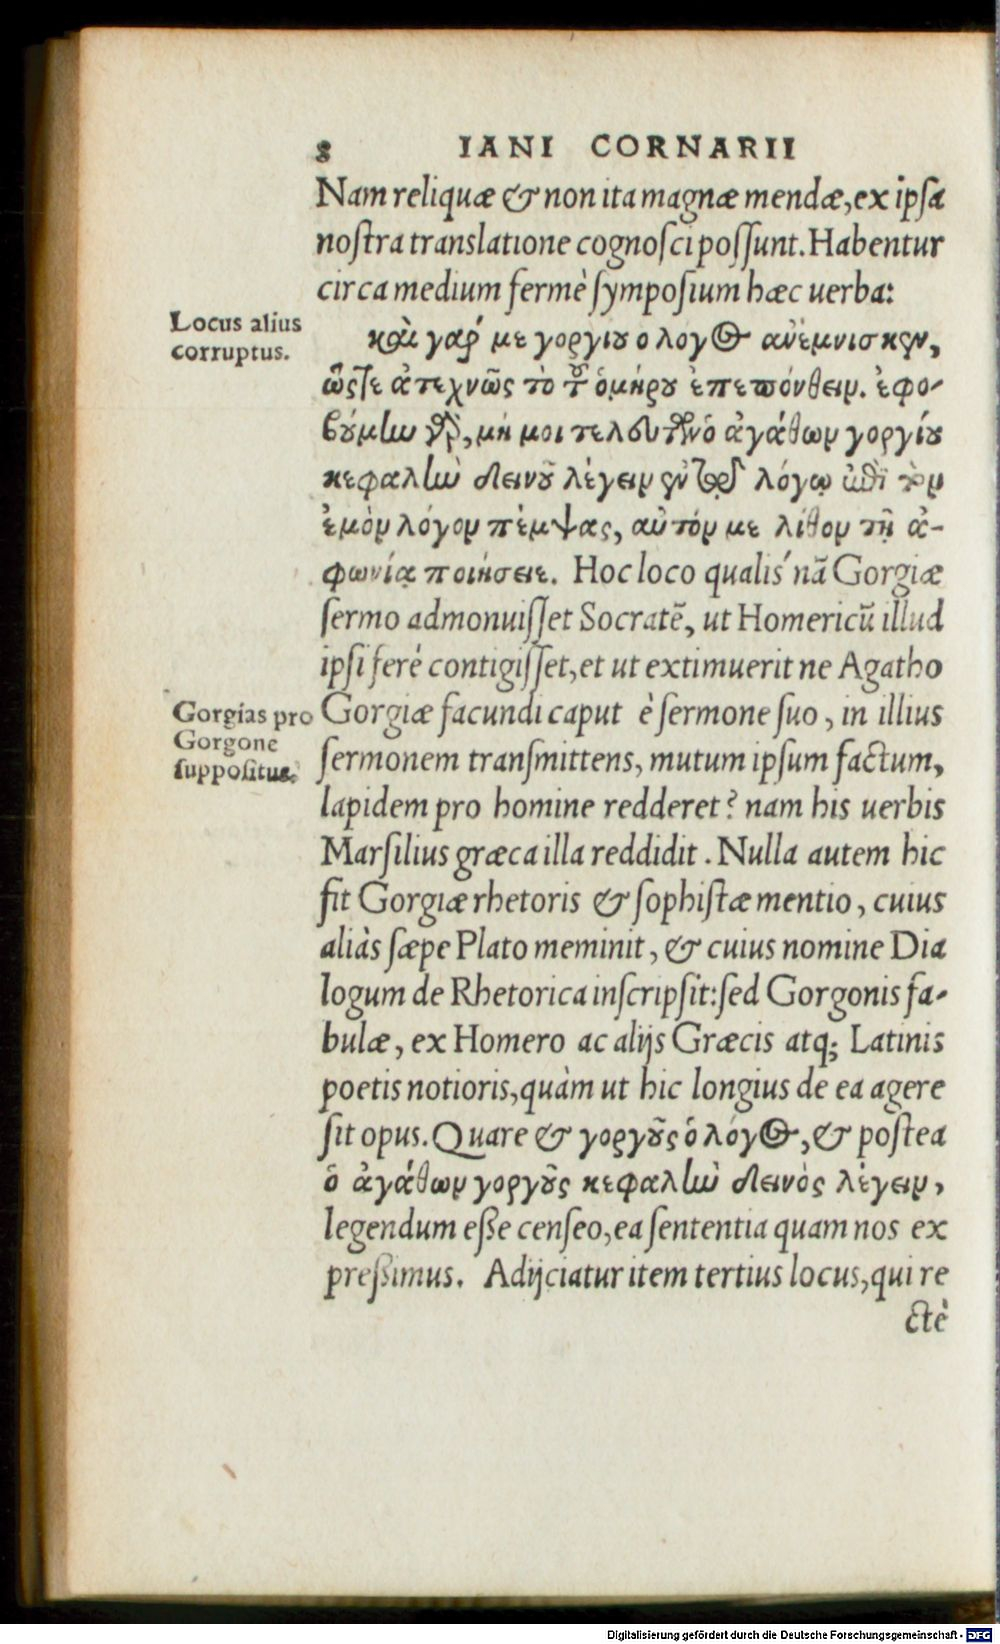 8 IANI CORNARII
Nam reliquæ & non ita magnæ mendæ, ex ipſa
noſtra translatione cognoſci poſſunt. Habentur
circa medium fermè ſympoſium hæc uerba:
Locus alius
corruptus.
καὶ γαρ́ με γοργίου ο λογος ανἐμνισκεν,
ὥςτε ἀτεχνῶς τὸ τοῦ ὁμήρου ἐπεπόνθειν. ἐφο-
βούμην γὰρ, μή μοι τελευτῶν ὁ ἀγάθων γοργίου
κεφαλὴν δεινοῦ λέγειν ἐν τῷ λόγῳ ἐπὶ τὸν
ἐμὸν λόγον πέμψας, αὐτόν με λίθον τῇ ἀ-
φωνίᾳ ποιήσειε. Hoc loco qualis nã Gorgiæ
ſermo admonuiſſet Socratẽ, ut Homericũ illud
ipſi ferè contigiſſet, et ut extimuerit ne Agatho
Gorgías pro
Gorgone
ſuppoſitus.
Gorgiæ facundi caput è ſermone ſuo, in illius
ſermonem tranſmittens, mutum ipſum factum,
lapidem pro homine redderet? nam his uerbis
Marſilius græca illa reddidit. Nulla autem hic
fit Gorgiæ rhetoris & ſophiſtæ mentio, cuius
aliàs ſæpe Plato meminit, & cuius nomine Dia
logum de Rhetorica inſcripſit: ſed Gorgonis fa-
bulæ, ex Homero ac alijs Græcis atq; Latinis
poetis notioris, quàm ut hic longius de ea agere
ſit opus. Quare & γοργοῦς ὁ λόγος, & poſtea
ὁ ἀγάθων γοργοῦς κεφαλὴν δεινὸς λέγειν,
legendum eſſe cenſeo, ea ſententia quam nos ex
preßimus. Adijciatur item tertius locus, qui re
ctè
Digitalisierung gefördert durch die Deutsche Forschungsgemeinschaft - DFG